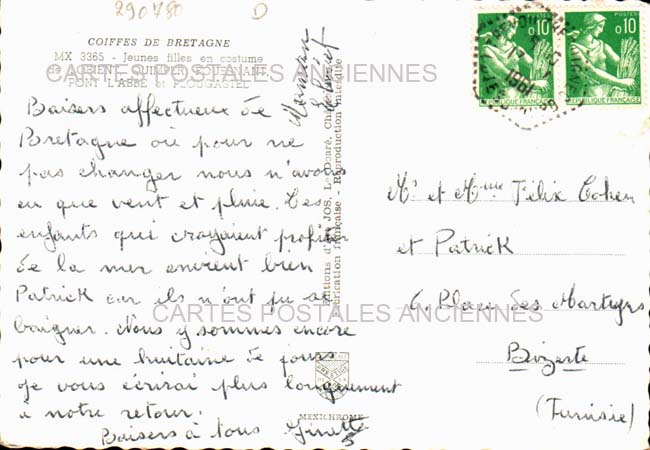 290780 D
COIFFES DE BRETAGNE
MX 3365 - Jeunes filles en costume
de LORIENT, QUIMPER, FOUESNANT,
PONT L'ABBÉ et PLOUGASTEL
Baisers affectueux de
Bretagne où pour ne
pas changer nous n'avons
eu que vent et pluie. Les
enfants qui croyaient profiter
de la mer envient bien
Patrick car ils n'ont pu se
baigner. Nous y sommes encore
pour une huitaine de jours
Je vous écrirai plus longuement
à notre retour.
Baisers à tous Ginette
Maman
Editions d'Art JOS, Le Doaré,
Fabrication française - Reproduction interdite
MEXICHROME
POSTES
0,10
REPUBLIQUE FRANÇAISE
POSTES
0,10
REPUBLIQUE FRANÇAISE
1961
Mr et Mme Félix Cohen
et Patrick
6, Place des Martyrs
Bizerte
(Tunisie)
CARTES POSTALES ANCIENNES
CARTES POSTALES ANCIENNES